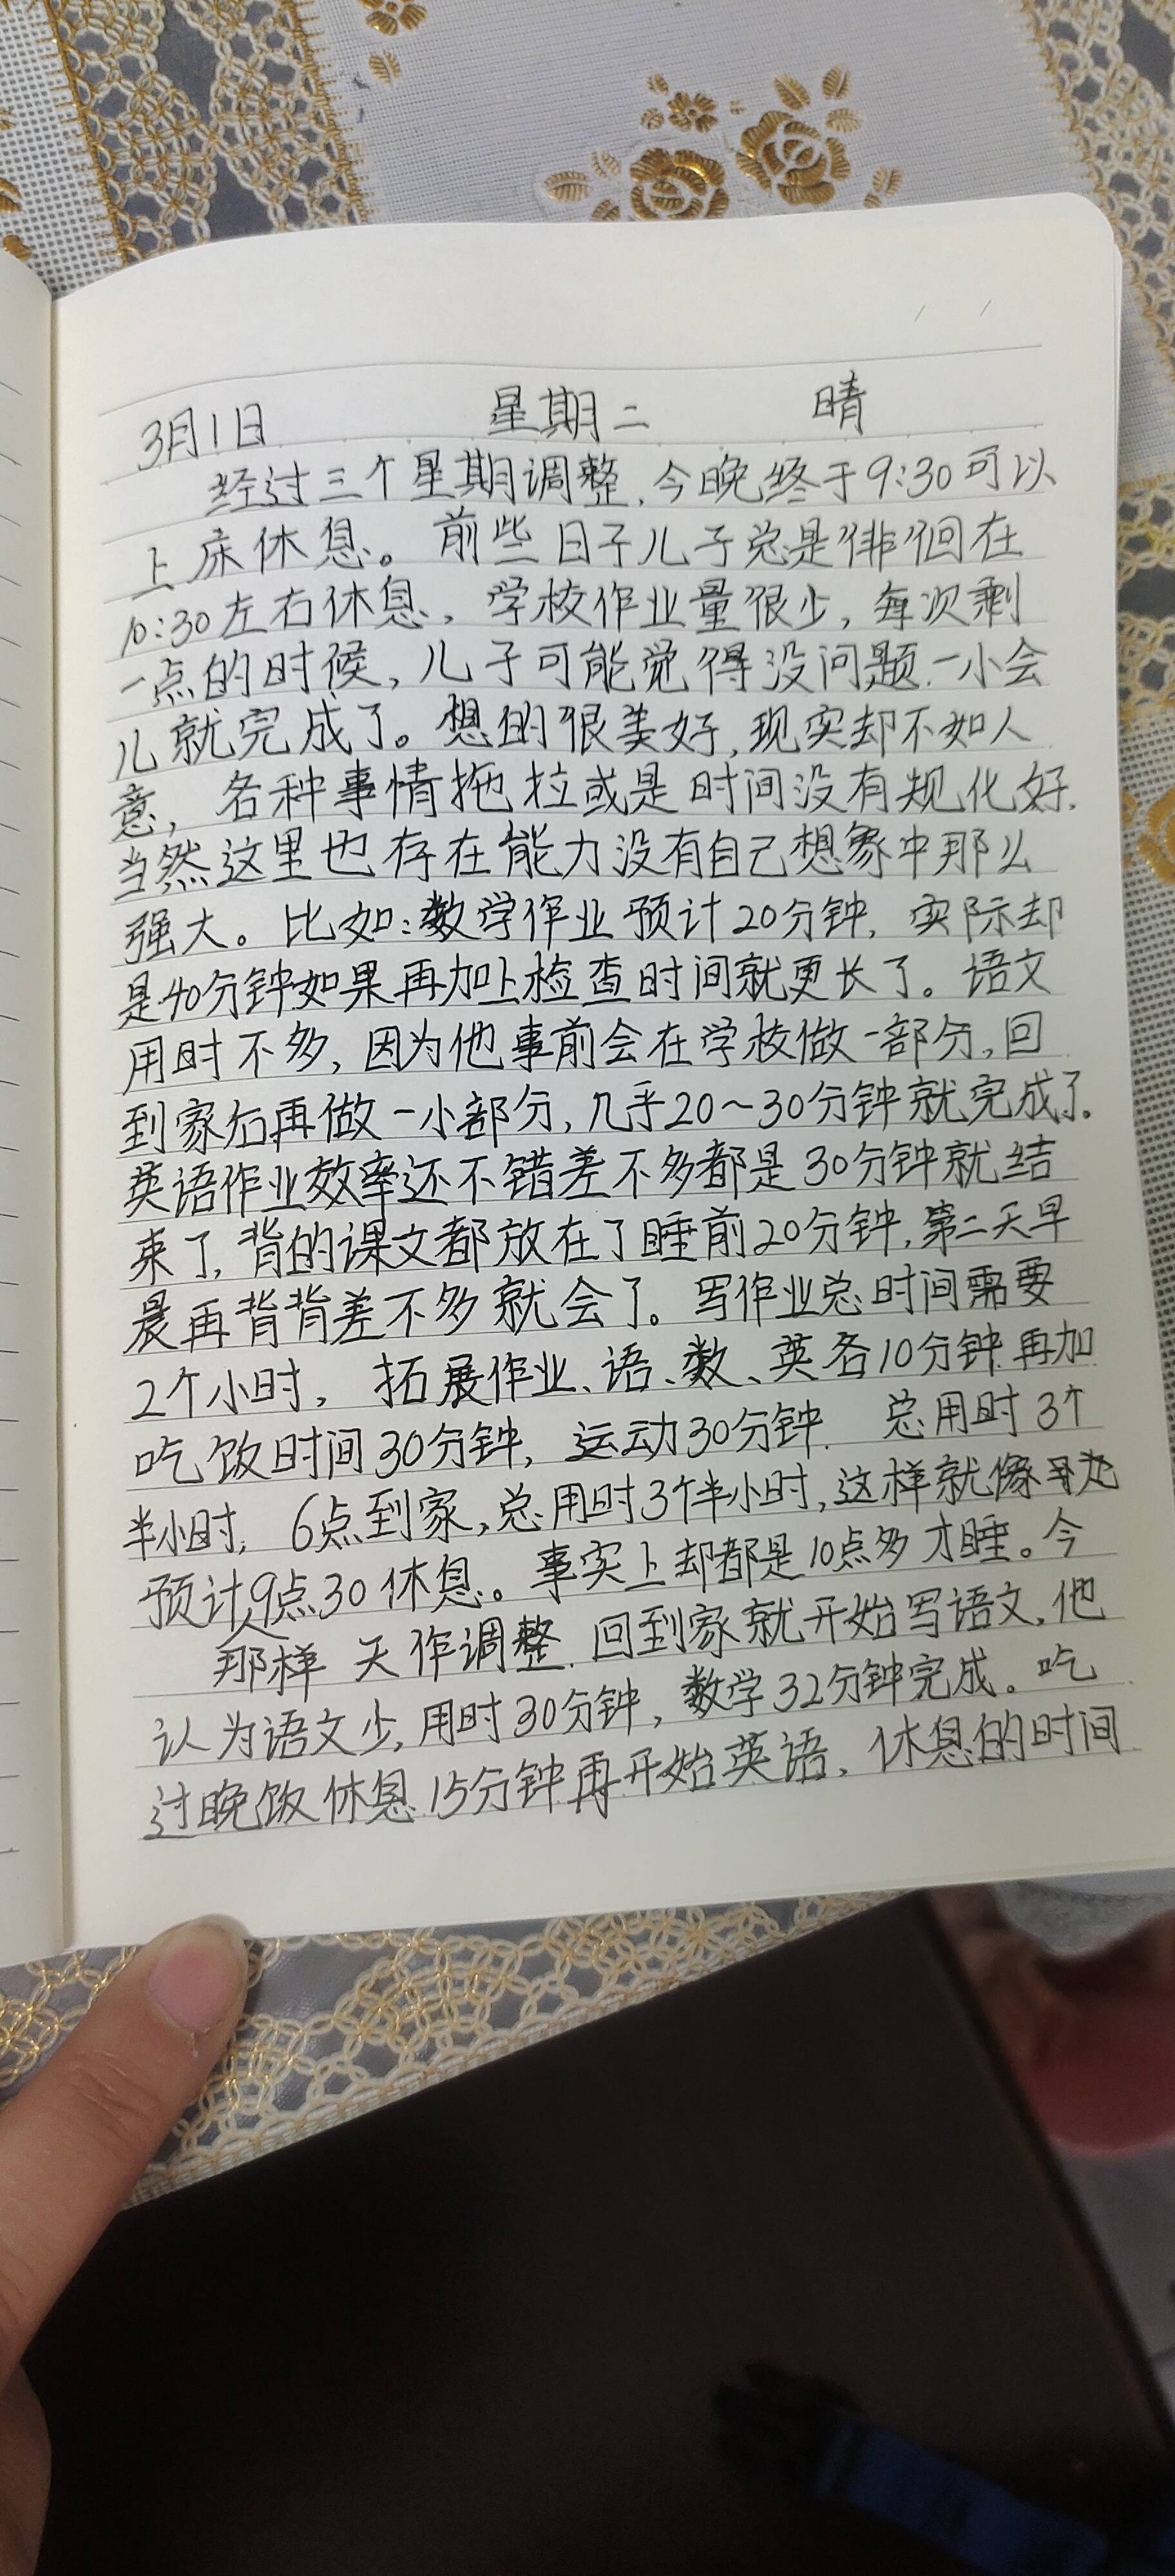 3月1日 星期二 晴
经过三个星期调整,今晚终于9:30可以
上床休息。前些日子儿子总是"徘"徊在
10:30左右休息,学校作业量很少,每次剩
一点的时候,儿子可能觉得没问题一小会
儿就完成了。想的很美好,现实却不如人
意,各种事情拖拉或是时间没有规化好.
当然这里也存在能力没有自己想象中那么
强大。比如:数学作业预计20分钟,实际却
是40分钟如果再加上检查时间就更长了。语文
用时不多,因为他事前会在学校做一部分,回
到家后再做一小部分,几乎20~30分钟就完成了.
英语作业效率还不错差不多都是30分钟就结
束了,背的课文都放在了睡前20分钟,第二天早
晨再背背差不多就会了。写作业总时间需要
2个小时,拓展作业、语、数、英各10分钟.再加
吃饭时间30分钟,运动30分钟. 总用时3个
半小时,6点到家,总用时3个半小时,这样就像
预计9点30休息。事实上却都是10点多才睡。今
那样 天作调整.回到家就开始写语文,他
认为语文少,用时30分钟,数学32分钟完成。吃
过晚饭休息15分钟再开始英语,休息的时间